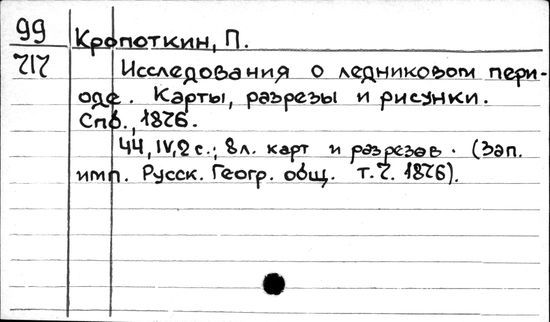 99
717
Кропоткин, П.
Исследования о ледниковом пери-
оде. Карты, разрезы и рисунки.
Спб., 1876.
44, IV, 2 с.; 8 л. карт и разрезов. (Зап.
имп. Русск. Геогр. общ. т. 7. 1876).